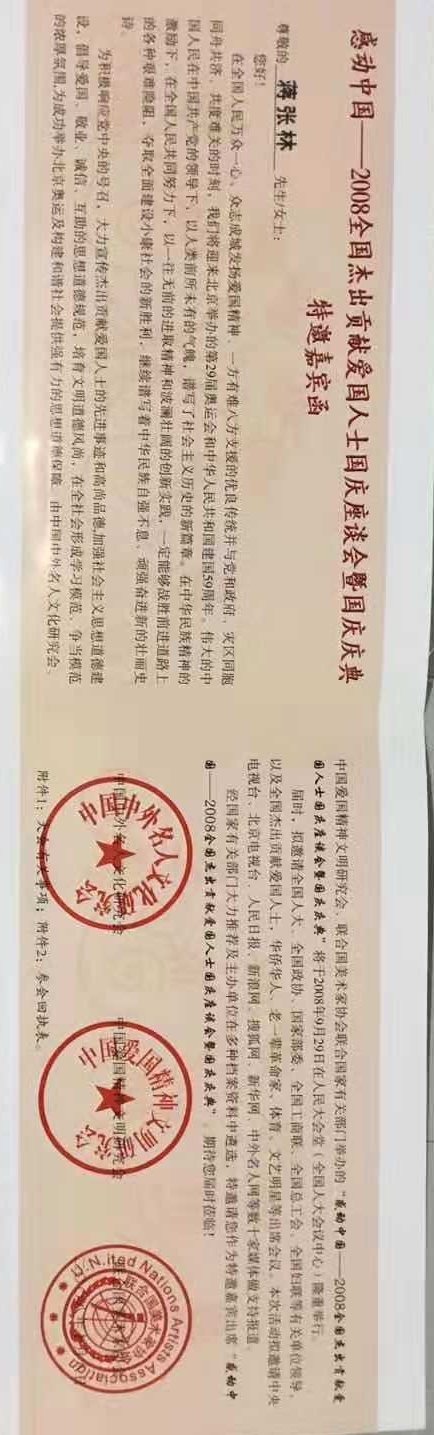 感动中国——2008全国杰出贡献爱国人士国庆座谈会暨国庆庆典
特邀嘉宾函
尊敬的 蒋张林 先生/女士：
您好！
在全国人民万众一心、众志成城发扬爱国精神、一方有难八方支援的优良传统并与党和政府、灾区同胞
同舟共济、共度难关的时刻，我们将迎来北京举办的第29届奥运会和中华人民共和国建国59周年。伟大的中
国人民在中国共产党的领导下，以人类前所未有的气魄，谱写了社会主义历史的新篇章。在中华民族精神的
激励下，在全国人民共同努力下，以一往无前的进取精神和波澜壮阔的创新实践，一定能够战胜前进道路上
的各种艰难险阻，夺取全面建设小康社会的新胜利，继续谱写着中华民族自强不息、顽强奋进新的壮丽史
诗。
为积极响应党中央的号召，大力宣传杰出贡献爱国人士的先进事迹和高尚品德,加强社会主义思想道德建
设，倡导爱国、敬业、诚信、互助的思想道德规范，培育文明道德风尚，在全社会形成学习模范、争当模范
的浓厚氛围,为成功举办北京奥运及构建和谐社会提供强有力的思想道德保障，由中国中外名人文化研究会、
中国爱国精神文明研究会、联合国美术家协会联合国家有关部门举办的“感动中国——2008全国杰出贡献爱
国人士国庆座谈会暨国庆庆典”将于2008年9月29日在人民大会堂（全国人大会议中心）隆重举行。
届时，拟邀请全国人大、全国政协、国家部委、全国工商联、全国总工会、全国妇联等有关单位领导，
以及全国杰出贡献爱国人士，华侨华人、老一辈革命家、体育、文艺明星等出席会议。本次活动拟邀请中央
电视台、北京电视台、人民日报、新浪网、搜狐网、新华网、中外名人网等数十家媒体做支持报道。
经国家有关部门大力推荐及主办单位在多种档案资料中遴选，特邀请您作为特邀嘉宾出席“感动中
国——2008全国杰出贡献爱国人士国庆座谈会暨国庆庆典”。期待您届时莅临！
中国中外名人文化研究会
中国爱国精神文明研究会
联合国美术家协会
United Nations Artists Association
附件1：大会有关事项；附件2：参会回执表。